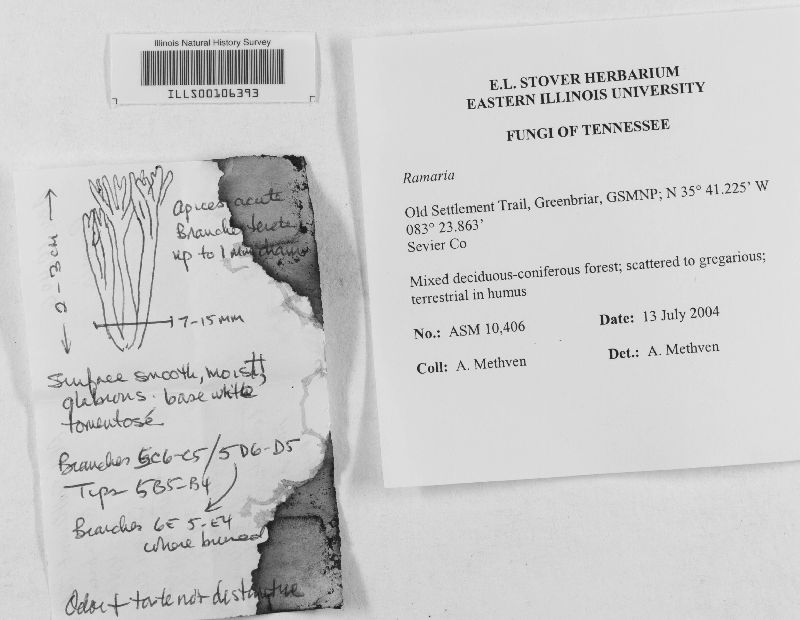 Illinois Natural History Survey
ILLS00106393
E.L. STOVER HERBARIUM
EASTERN ILLINOIS UNIVERSITY
FUNGI OF TENNESSEE
Ramaria
Old Settlement Trail, Greenbriar, GSMNP; N 35° 41.225’ W
083° 23.863’
Sevier Co
Mixed deciduous-coniferous forest; scattered to gregarious;
terrestrial in humus
No.: ASM 10,406 Date: 13 July 2004
Coll: A. Methven Det.: A. Methven
Apices acute
Branches terete
up to 1 mm diam
2-3 cm
7-15 mm
Surface smooth, moist,
glabrous. base white
tomentose
Branches 5C6-C5/5D6-D5
Tips 5B5-B4
Branches 6E 5-E4
where bruised
Odor + taste not distinctive